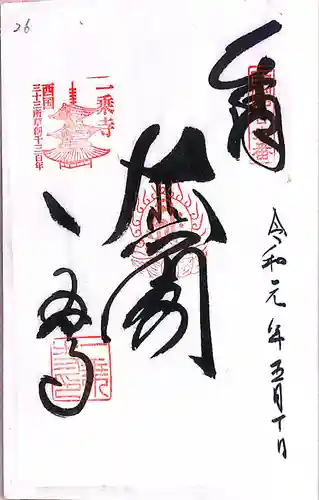 26
奉拝
令和元年五月十日
大悲閣
一乗寺
一乗寺
西国
三十三所草創千三百年